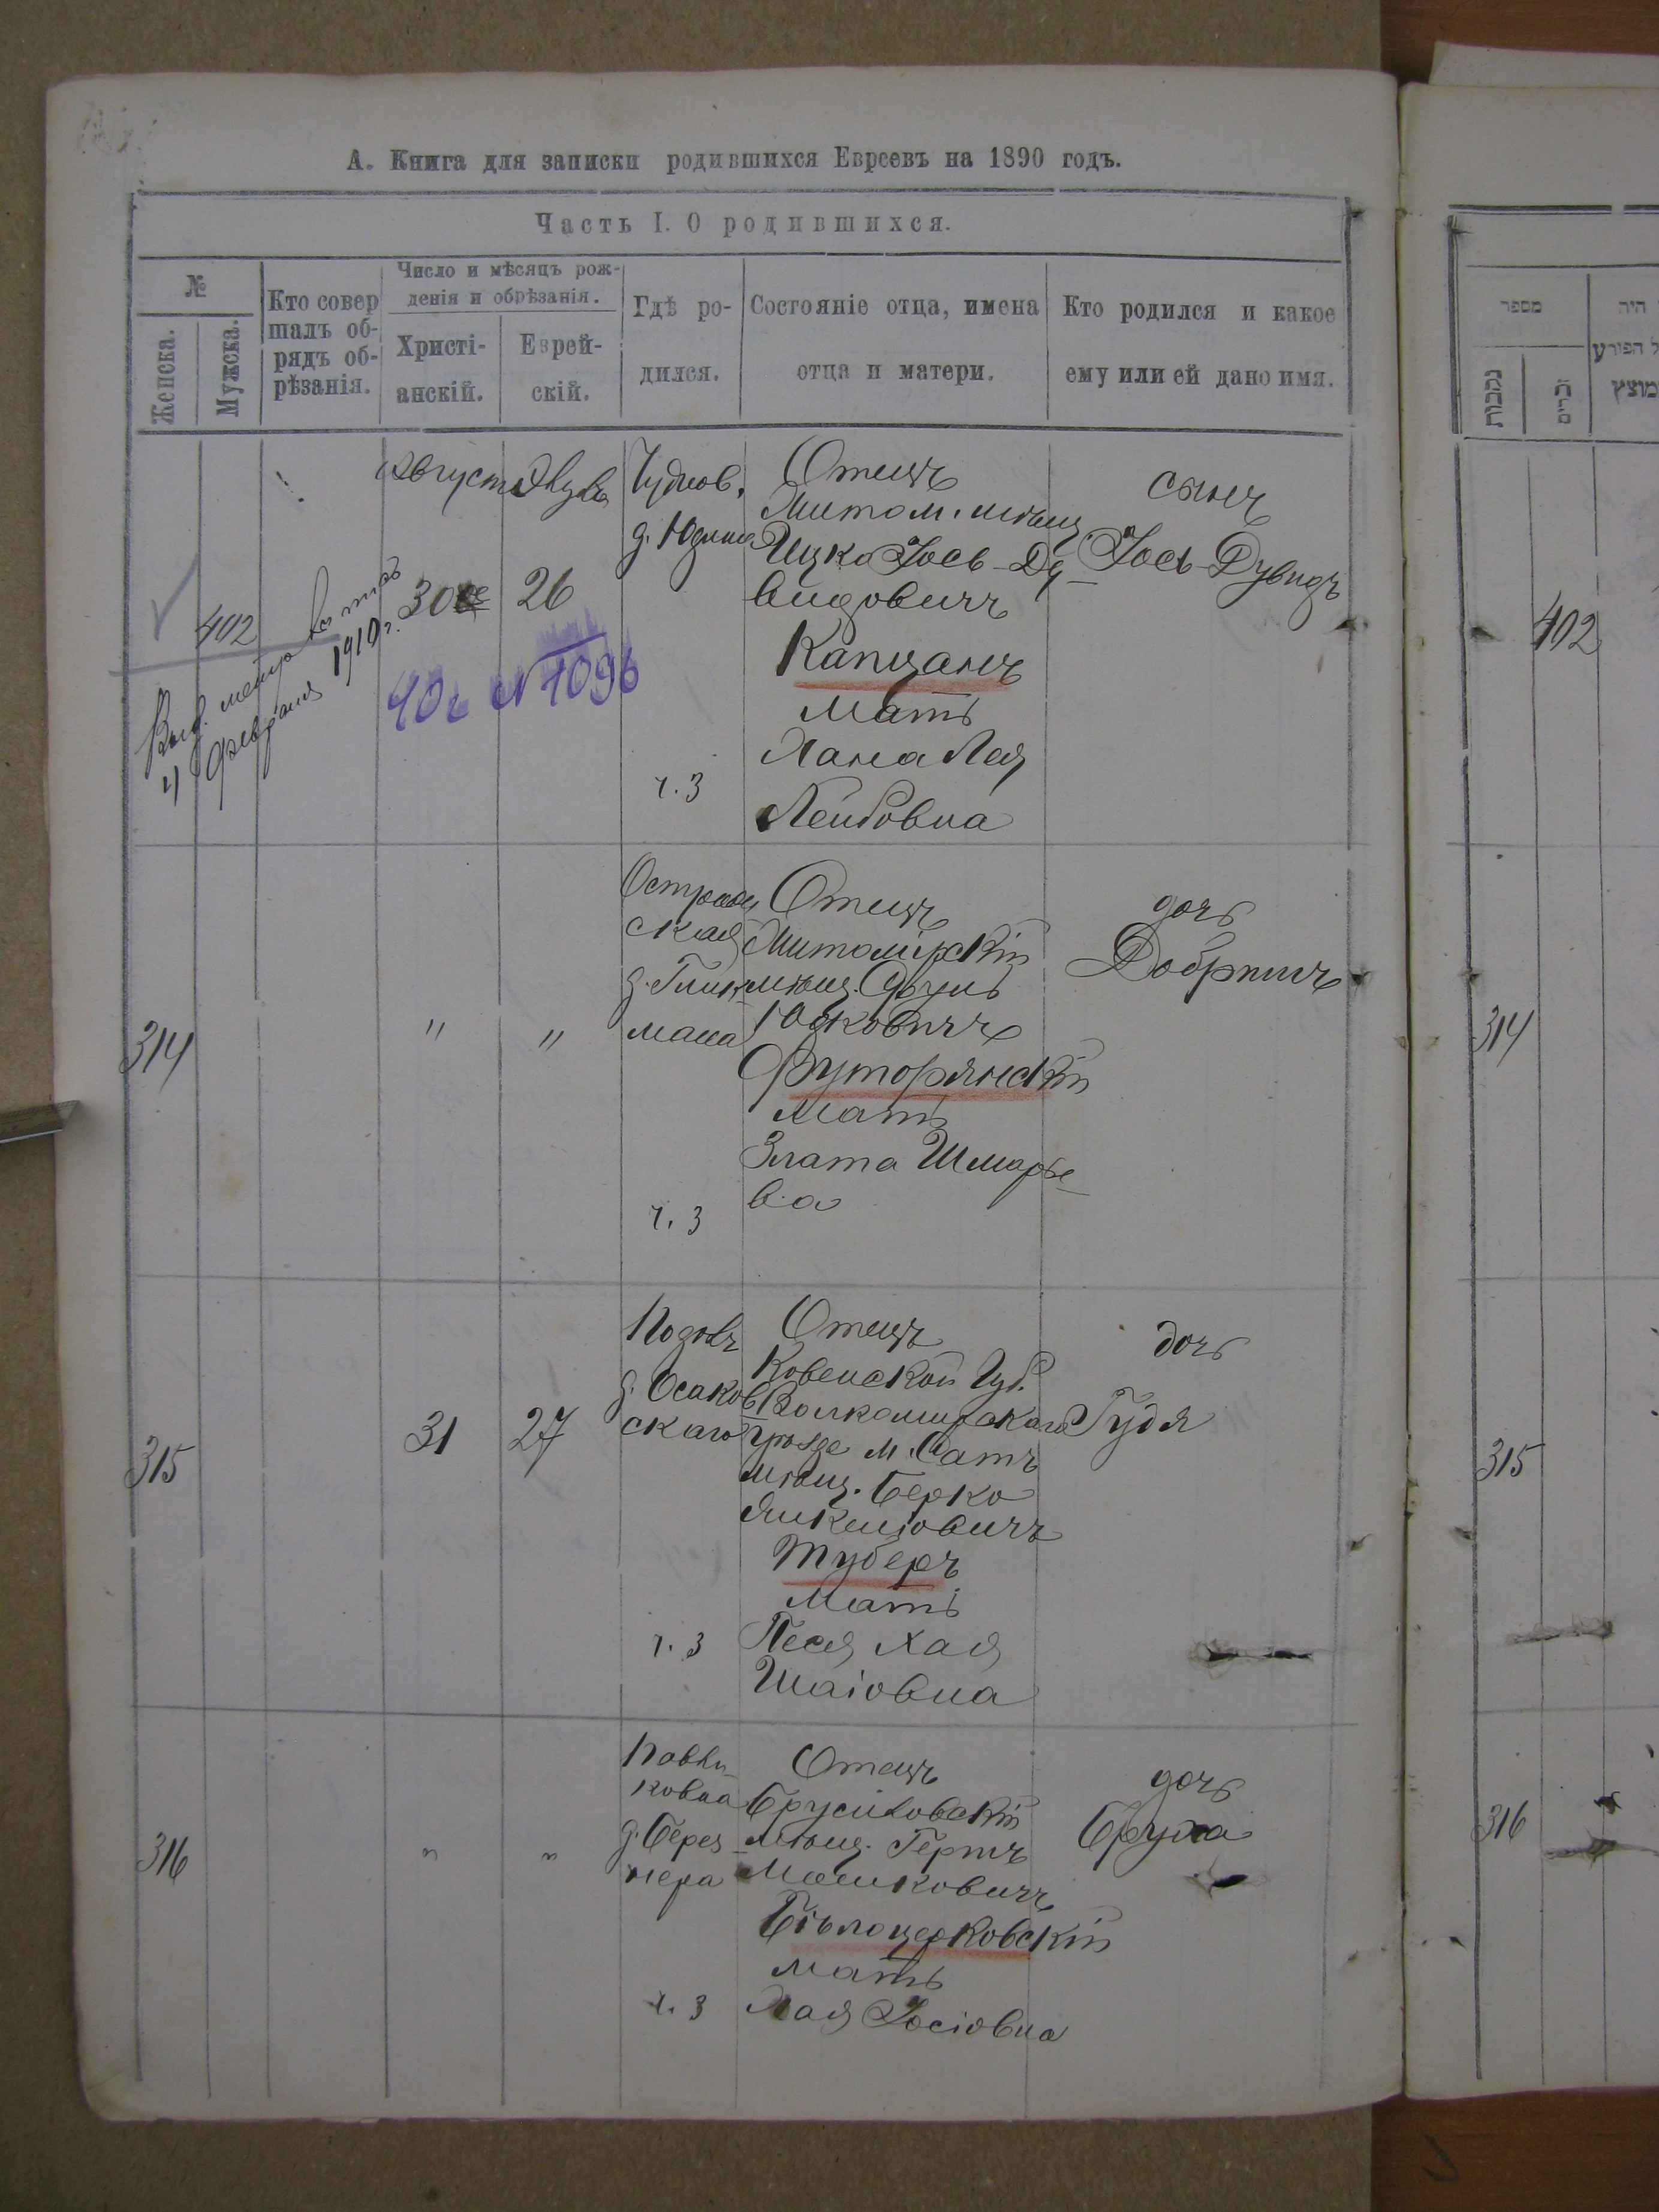 А. Книга для записки родившихся Евреевъ на 1890 годъ.
Часть I. О родившихся.
№
Женска.
Мужска.
Кто совер
шалъ об-
рядъ об-
рѣзанія.
Число и мѣсяцъ рож-
денія и обрѣзанія.
Христі-
анскій.
Еврей-
скій.
Гдѣ ро-
дился.
Состояніе отца, имена
отца и матери.
Кто родился и какое
ему или ей дано имя.
402
Выд. метр
4 февраля 1910 г.
Августъ
30
26
40 г № 1096
Чуднов.
ч. 3
Отецъ
Житом. мѣщ
Ицко Йось-Ду-
видовичъ
Капцанъ
Мать
Хана Лея
Лейбовна
сынъ
Йось-Дувидъ
314
"
"
ская
д. Глик-
мана
ч. 3
Отецъ
Житомірскій
мѣщ.
Юсковичъ
Футорянскій
Мать
Злата Шмарье-
ва
дочь
Добришъ
315
31
27
д. Осаков
скаго
ч. 3
Отецъ
Ковенской Губ.
Волкомирскаго
уѣзда м.
мѣщ. Берко
Янкелiовичъ
Туберъ
Мать
Песя Хая
Шаіовна
дочь
Гудя
316
"
"
ковна
д. Берез-
нера
ч. 3
Отецъ
Брусиловскій
мѣщ. Гершъ
Мошковичъ
Бѣлоцерковскій
мать
Хая Йосіовна
дочь
Бруха
מספר
נקבות
זכרים
היה
הפורע
מוצץ
402
314
315
316